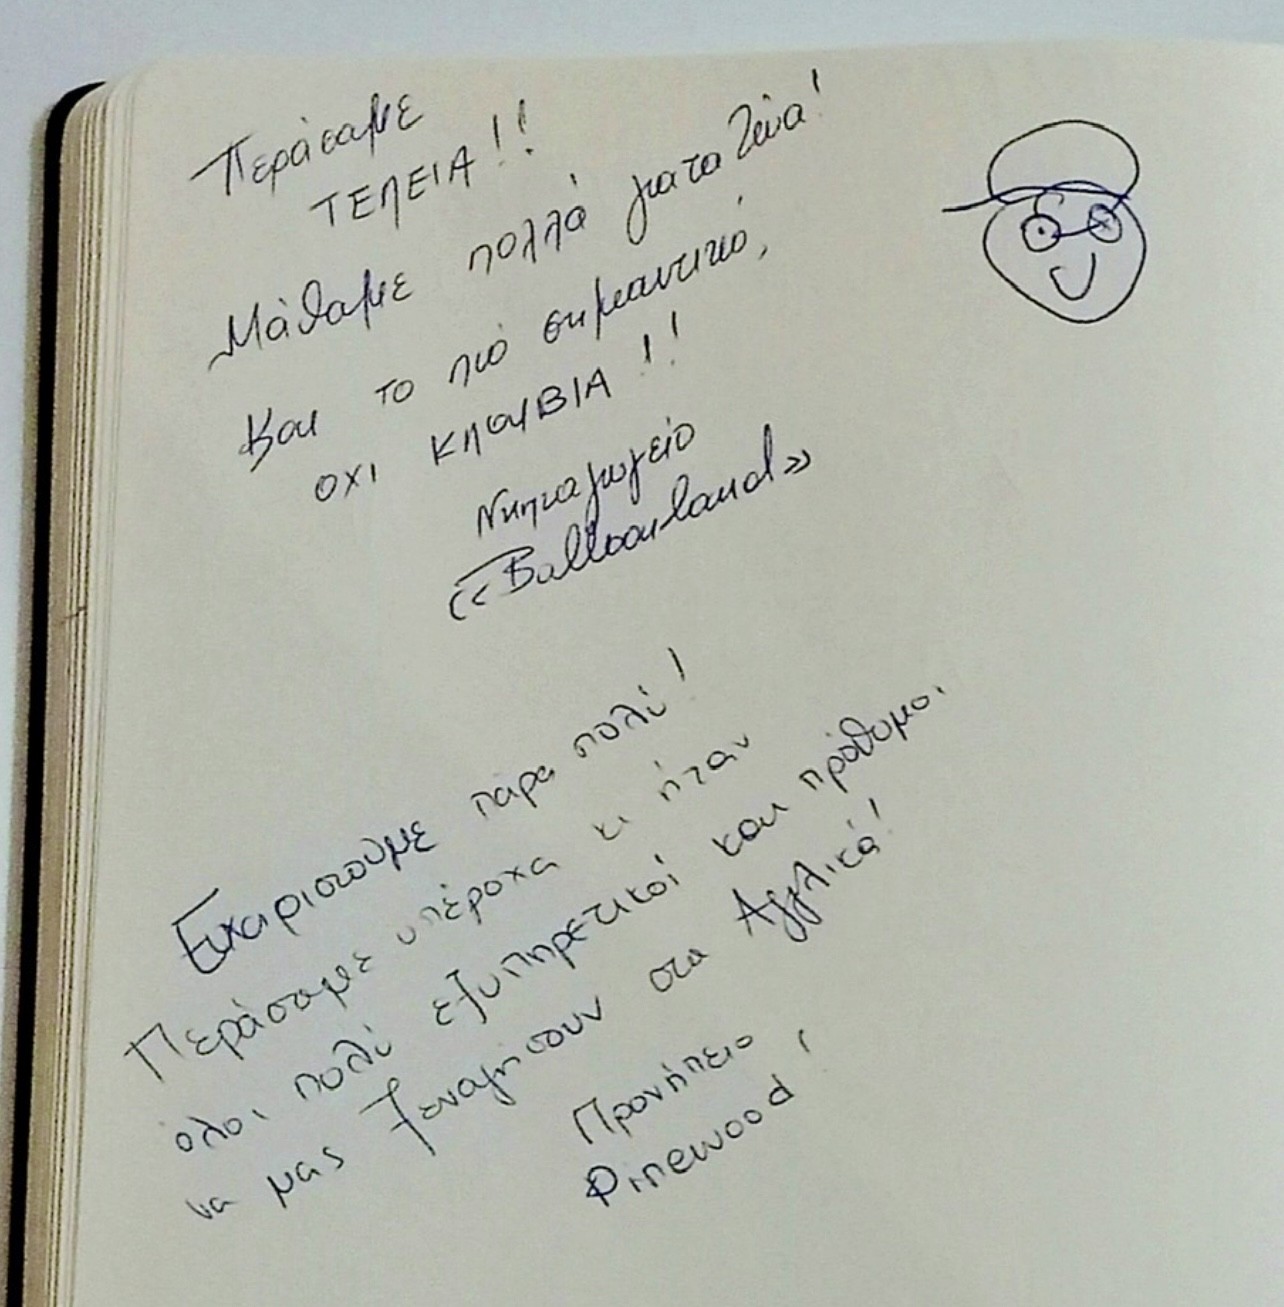 Περάσαμε
ΤΕΛΕΙΑ!!
Μάθαμε πολλά για τα ζώα!
Και το πιο σημαντικό,
ΟΧΙ ΚΛΟΥΒΙΑ!!
Νηπιαγωγείο
«Balloonland»
Ευχαριστούμε πάρα πολύ!
Περάσαμε υπέροχα κι ήταν
όλοι πολύ εξυπηρετικοί και πρόθυμοι
να μας ξεναγήσουν στα Αγγλικά!
Προνήπειο
Pinewood!